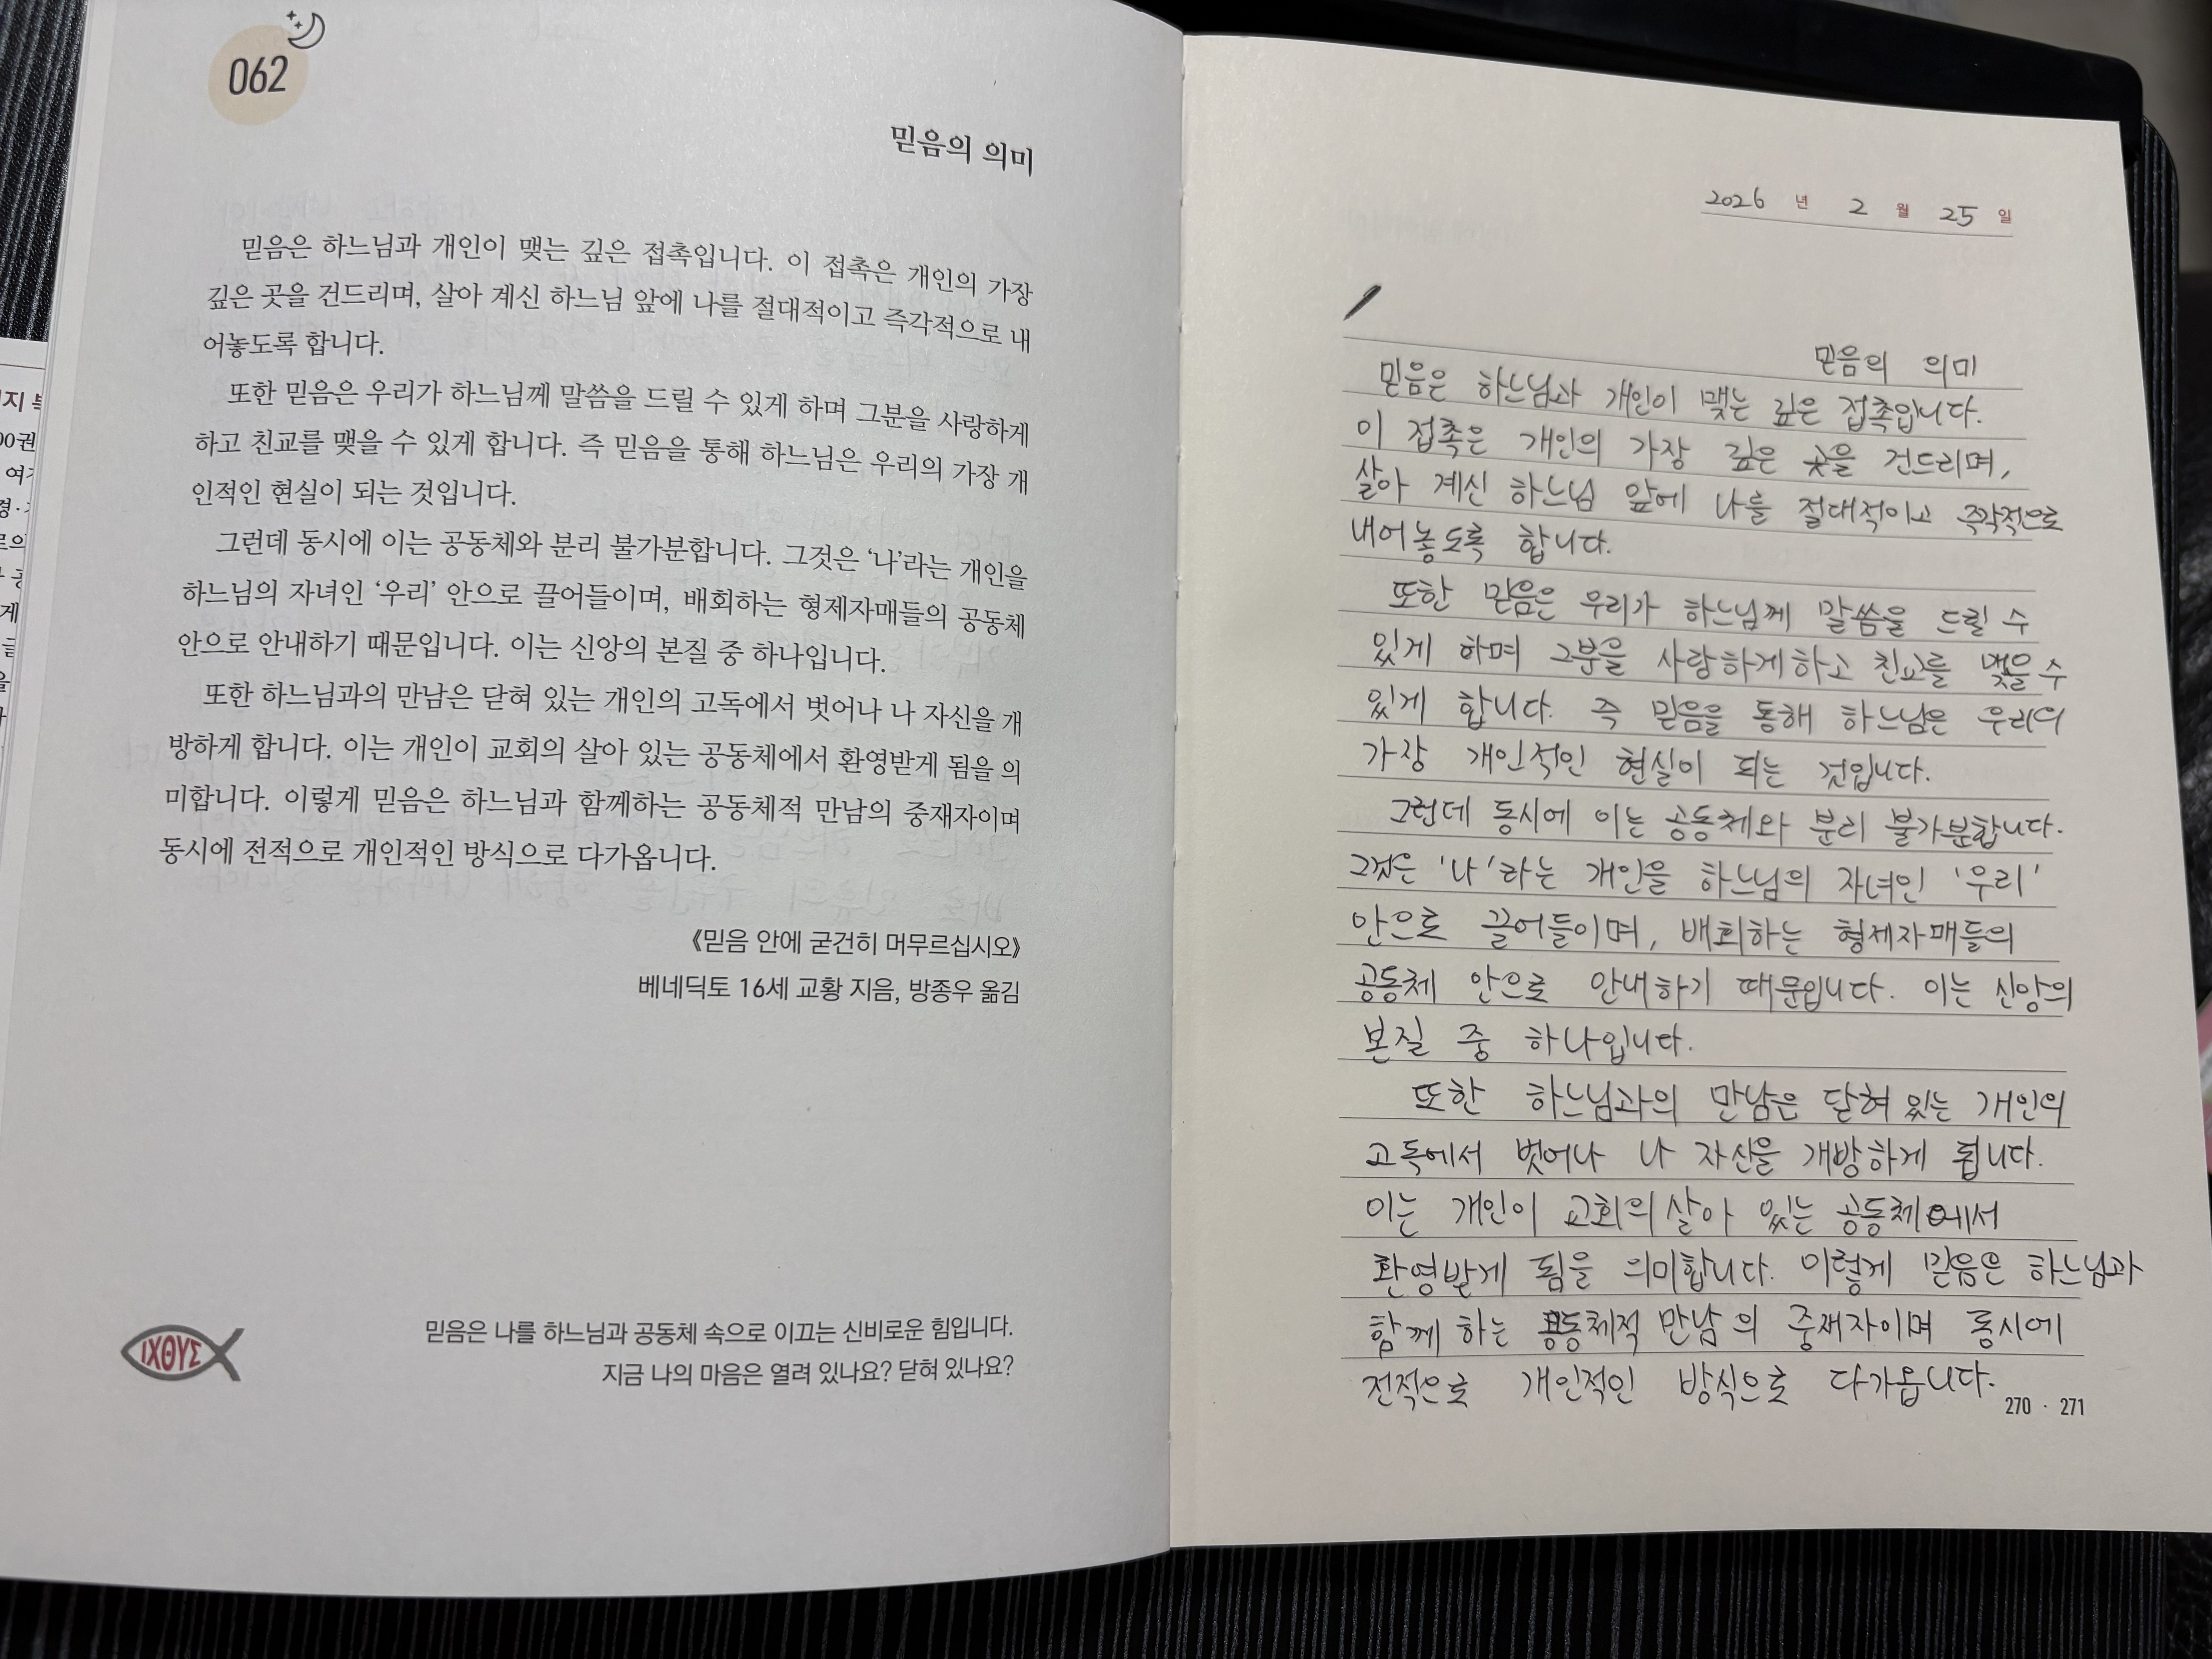 062
믿음의 의미
믿음은 하느님과 개인이 맺는 깊은 접촉입니다. 이 접촉은 개인의 가장
깊은 곳을 건드리며, 살아 계신 하느님 앞에 나를 절대적이고 즉각적으로 내
어놓도록 합니다.
또한 믿음은 우리가 하느님께 말씀을 드릴 수 있게 하며 그분을 사랑하게
하고 친교를 맺을 수 있게 합니다. 즉 믿음을 통해 하느님은 우리의 가장 개
인적인 현실이 되는 것입니다.
그런데 동시에 이는 공동체와 분리 불가분합니다. 그것은 ‘나’라는 개인을
하느님의 자녀인 ‘우리’ 안으로 끌어들이며, 배회하는 형제자매들의 공동체
안으로 안내하기 때문입니다. 이는 신앙의 본질 중 하나입니다.
또한 하느님과의 만남은 닫혀 있는 개인의 고독에서 벗어나 나 자신을 개
방하게 합니다. 이는 개인이 교회의 살아 있는 공동체에서 환영받게 됨을 의
미합니다. 이렇게 믿음은 하느님과 함께하는 공동체적 만남의 중재자이며
동시에 전적으로 개인적인 방식으로 다가옵니다.
《믿음 안에 굳건히 머무르십시오》
베네딕토 16세 교황 지음, 방종우 옮김
ΙΧΘΥΣ
믿음은 나를 하느님과 공동체 속으로 이끄는 신비로운 힘입니다.
지금 나의 마음은 열려 있나요? 닫혀 있나요?
2026 년 2 월 25 일
믿음의 의미
믿음은 하느님과 개인이 맺는 깊은 접촉입니다.
이 접촉은 개인의 가장 깊은 곳을 건드리며,
살아 계신 하느님 앞에 나를 절대적이고 즉각적으로
내어놓도록 합니다.
또한 믿음은 우리가 하느님께 말씀을 드릴 수
있게 하며 그분을 사랑하게하고 친교를 맺을 수
있게 합니다. 즉 믿음을 통해 하느님은 우리의
가장 개인적인 현실이 되는 것입니다.
그런데 동시에 이는 공동체와 분리 불가분합니다.
그것은 '나'라는 개인을 하느님의 자녀인 '우리'
안으로 끌어들이며, 배회하는 형제자매들의
공동체 안으로 안내하기 때문입니다. 이는 신앙의
본질 중 하나입니다.
또한 하느님과의 만남은 닫혀 있는 개인의
고독에서 벗어나 나 자신을 개방하게 됩니다.
이는 개인이 교회의 살아 있는 공동체에서
환영받게 됨을 의미합니다. 이렇게 믿음은 하느님과
함께 하는 공동체적 만남의 중재자이며 동시에
전적으로 개인적인 방식으로 다가옵니다.
270 · 271